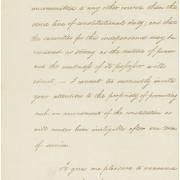 accountabilities to any other source than the
voice line of constitutional duty; and that
the securities for this independence may be
rendered as strong as the nature of power
and the weakness of its possessor will
admit, — I cannot too earnestly invite
your attention to the propriety of promoting
such an amendment of the constitution as
will render him ineligible after one term
of service.
It gives me pleasure to announce